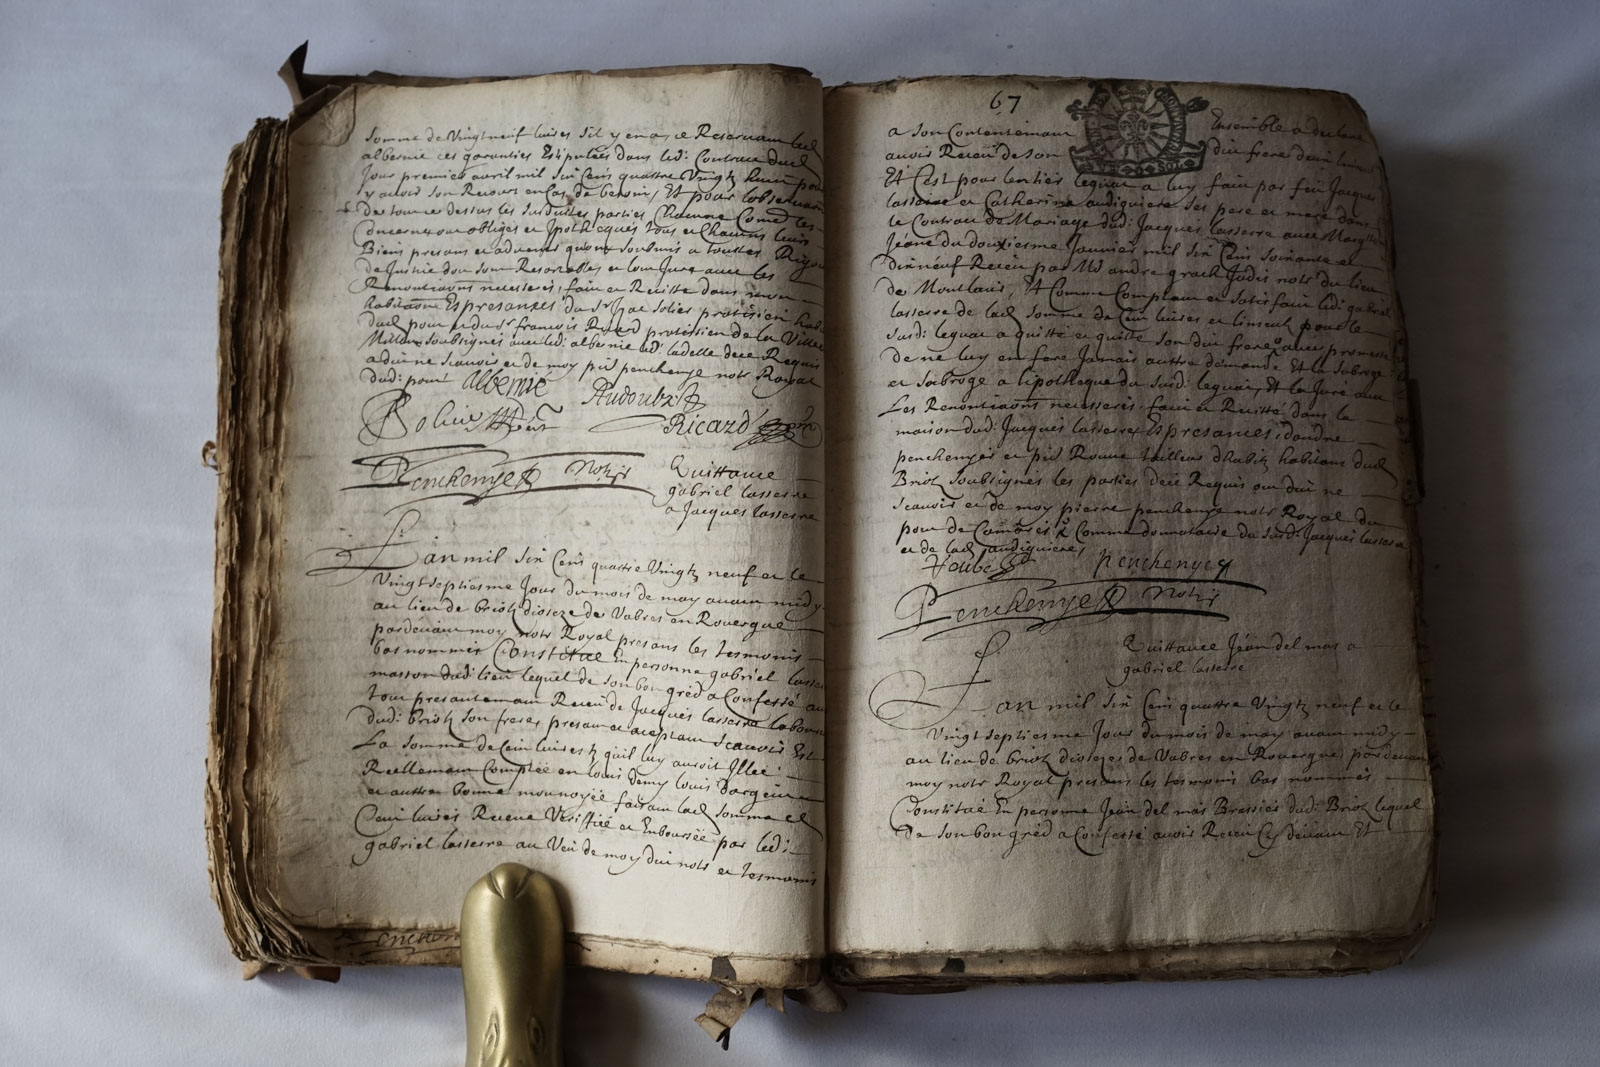 somme de Vingt neuf livres sil y en a, se Reservant led
albernie ces garanties Estipulées dans led: Contrat dud
Jour premier avril mil six Cens quattre Vingtz
y avoir son Recours en Cas de besoin, Et pour lobservan
de tout ce dessus les susdites parties Chacune Come les
Concerne ont obligés et Ipotheques tous et Chacuns leurs
Biens presans et advenir quont soubmis a touttes Rigeu
de Justice dou sont Resortables et lont Jure avec les
Renontiaons necesseres, fait et Resitté dans
habitaon Es presances du Sr Izac solies pratitien habi
dud pont et du Sr francois Ricard pratitien de la Ville
Millau soubsignes avec led: albernie led: ladelle Requis
a dit ne scavoir et de moy pierre penchenye notr Royal
dud: pont Albernie
Audoubz
Solier Ricard
Penchenye Notr
Quittance
gabriel lasserre
a Jacques lasserre
Lan mil six Cens quattre Vingtz neuf et le
Vingt septiesme Jour du mois de may avant midy
au lieu de briolz dioseze de Vabres en Rouergue
pardevant moy notr Royal presans les tesmoins
bas nommes Constitué En personne gabriel lasse
masson dud: lieu lequel de son bon gréd a Confessé av
tout presantemant Receu de Jacques lasserre labour
dud: briolz son frere presant et aceptant scavoir Est
La somme de Cent livres quil luy auroit Illec
Reellemant Comptée en louis demy louis dargeant
et auttre bonne monnoyée faisant lad somme de
Cent livres Receue Veriffiée et Emboursée par led:
gabriel lasserre au Veu de moy dit notr et tesmoins
67
a son Contentemant Ensemble a declare
avoir Receu de son dit frere
Et C'est pour lentier leguat a luy fait par feu Jacques
lasserre et Catherine audiguiere ses pere et mere dans
le Contrat de Mariage dud: Jacques lasserre avec
Jeane du douxiesme Janvier mil six Cens soixante et
dixneuf Receu par Me andre grach Jadis notr du lieu
de Montlaur, Et Comme Comptant et satisfait led: gabriel
lasserre de lad somme de Cent livres et linseul pour le
susd: leguat a quitté et quitte son dit frere avec promesse
de ne luy en fere Jamais auttre demande Et la subroge
et subroge a lipotheque du susd: leguat, Et la Juré avec
Les Renontiaons necesseres, fait et Resitté dans la
maison dud: Jacques lasserre Es presances, dandre
penchenyer et pierre Roume tailleur dhabitz habitans dud
Briolz soubsignés les parties Requis ont dit ne
scavoir et de moy pierre penchenye notr Royal du
pont de Camares & Comme donnataire du susd: Jacques lasserre
et de lad audiguiere
penchenyer
Penchenye Notr
Quittance Jean del mas a
gabriel lasserre
Lan mil six Cens quattre Vingtz neuf et le
Vingt septiesme Jour du mois de may avant midy
au lieu de briolz diosezes de Vabres en Rouergue pardevant
moy notr Royal presans les tesmoins bas nommés
Constitué En personne Jean del mas Brassier dud: Briolz lequel
de son bon gréd a Confessé avoir Receu Cy devant Et